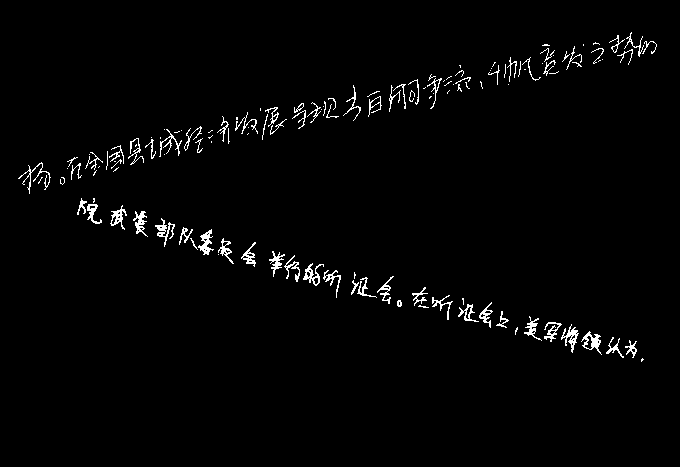 扬。在全国县域经济发展呈现当百舸争流、千帆竞发之势的
院武装部队委员会举行的听证会。在听证会上,美军将领认为,